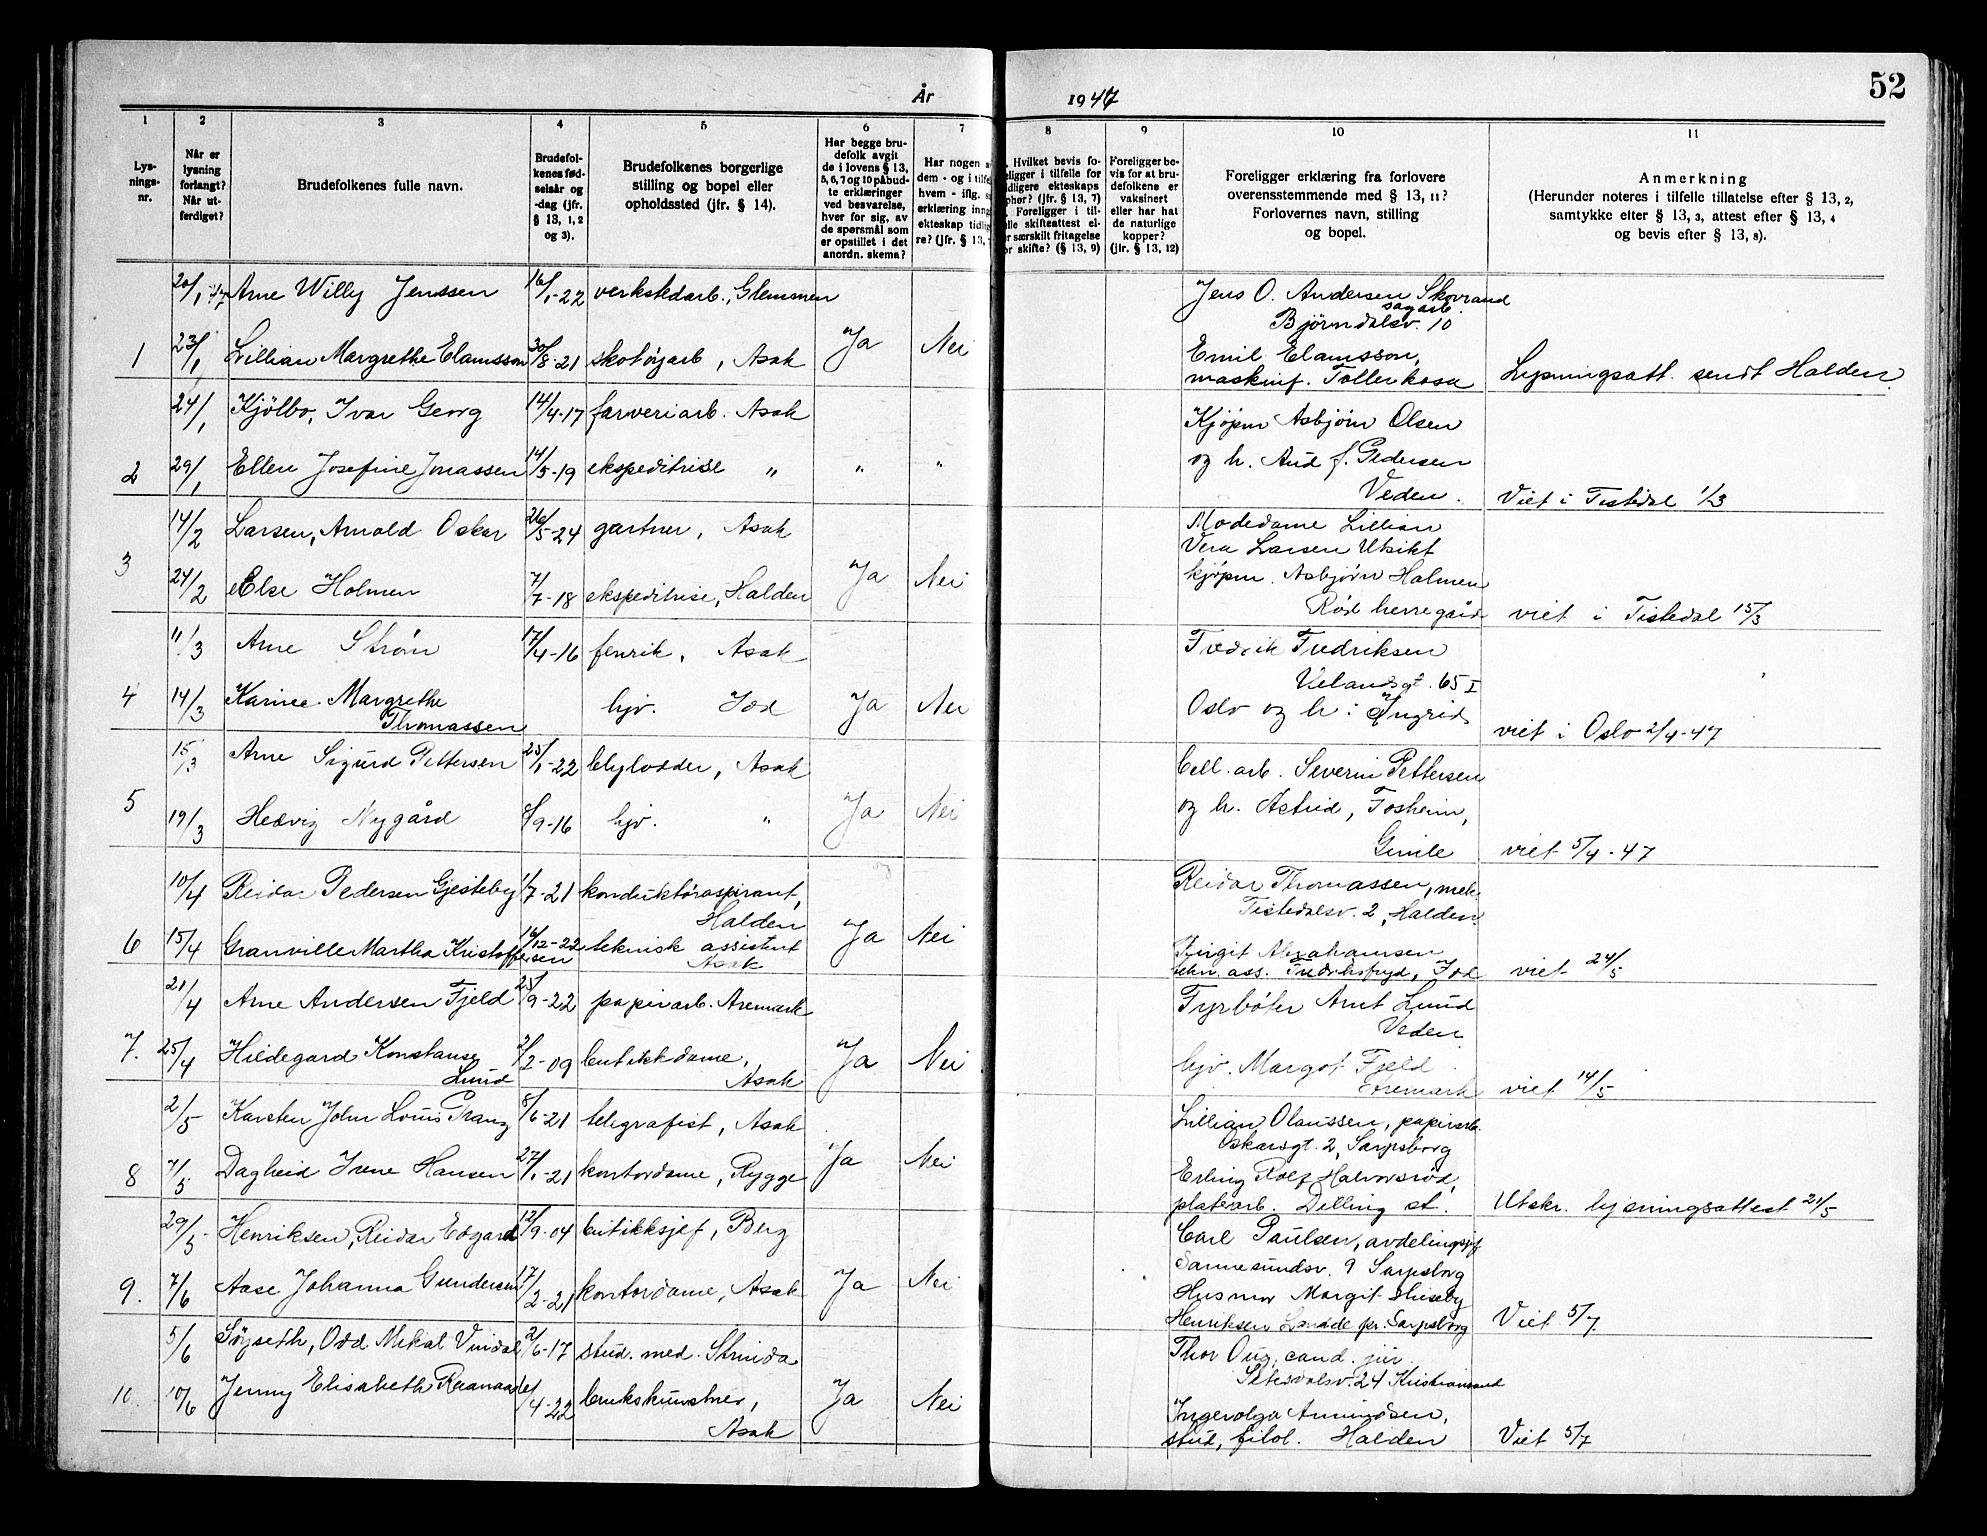 52
År 1947
1 2 3 4 5 6 7 8 9 10 11
Lys-
nings-
nr.
Når er
lysning
forlangt?
Når ut-
ferdiget?
Brudefolkenes fulle navn.
Brudefol-
kenes fød-
selsår og
-dag (jfr.
§ 13, 1, 2
og 3).
Brudefolkenes borgerlige
stilling og bopel eller
opholdssted (jfr. § 14).
Har begge bru-
defolk avgit
de i lovens § 13,
5, 6, 7 og 10 påbud-
te erklæringer
ved besvarelse,
hver for sig, av
de spørsmål som
er opstillet i det
anordn. skema?
Har nogen a
dem - og i tilfe
hvem - iflg. s
erklæring inng
ekteskap tidlig
re? (jfr. § 13,
Hvilket bevis fo-
eligger i tilfelle for
dligere ekteskaps
phør? (jfr. § 13, 7)
Foreligger i til-
lle skifteattest el-
r særskilt fritagelse
or skifte? (§ 13, 9)
Foreligger be-
vis for at bru-
defolkene er
vaksinert
eller har hat
de naturlige
kopper?
(jfr. § 13, 12)
Foreligger erklæring fra forlovere
overensstemmende med § 13, 11?
Forlovernes navn, stilling
og bopel.
Anmerkning
(Herunder noteres i tilfelle tillatelse efter § 13, 2,
samtykke efter § 13, 3, attest efter § 13, 4
og bevis efter § 13, 8).
20/1-47 Arne Willy Jenssen 16/1-22 verkstedarb., Glemmen
1 23/1 Lillian Margrethe Elamsson 30/8-21 skotøjarb, Asak Ja Nei
Jens O. Andersen Skovrand
sagarb.
Bjørndalsv. 10
Emil Elamsson,
maskinf. Tollerkasa Lysningsatt. sendt Halden
24/1 Kjölbo, Ivar Georg 14/4-17 farveriarb. Asak
2 29/1 Ellen Josefine Jonassen 14/5-19 ekspeditrise " " "
Kjøpm Asbjörn Olsen
og h. Aud f. Pedersen
Veden. Viet i Tistedal 1/3
14/2 Larsen, Arnold Oskar 26/5-24 gartner, Asak
3 24/2 Else Holmen 7/7-18 ekspeditrise, Halden Ja Nei
Modedame Lillian
Vera Larsen Utsikt
kjøpm. Asbjørn Holmen
Röd herregård viet i Tistedal 15/3
11/3 Arne Ström 17/4-16 fenrik, Asak
4 14/3 Karinee Margrethe
Thomassen hjv. Idd Ja Nei
Fredrik Fredriksen
Kelandsgt. 65 I
Oslo og h: Ingrid viet i Oslo 2/4-47
15/3 Arne Sigurd Pettersen 25/1-22 blylodder, Asak
5 19/3 Hedvig Nygård 8/9-16 hjv. " Ja Nei
Cell. arb. Severin Pettersen
og h. Astrid, Fosheim,
Gimle viet 5/4-47
10/4 Reidar Pedersen Gjesteby 1/7-21 konduktöraspirant,
Halden
6 15/4 Granville Martha Kristoffersen 16/12-22 teknisk assistent
Asak Ja Nei
Reidar Thomassen, mek.
Tistedalsv. 2, Halden.
Birgit Abrahamsen
tekn. ass. Fredriksfryd, Idd viet 24/5
21/4 Arne Andersen Fjeld 25/9-22 papirarb. Aremark
7. 25/4 Hildegard Konstanse
Lund 2/2-09 butikkdame,
Asak Ja Nei
Fyrböter Arnt Lund
Veden
hjv. Margot Fjeld
Aremark viet 14/5
2/5 Karsten John Louis Tranz 8/6-21 telegrafist, Asak
8 7/5 Dagheid Irene Hansen 27/1-21 kontordame, Rygge Ja Nei
Lillian Olaussen, papirarb.
Oskarsgt. 2, Sarpsborg
Erling Rolf Halvorsröd,
platearb. Dilling st. Utskr. lysningsattest 21/5
29/5 Henriksen, Reidar Edgard 12/9-04 butikksjef, Berg
9. 7/6 Aase Johanna Gundersen 17/2-21 kontordame, Asak Ja Nei
Carl Paulsen, avdelingsjef
Sannesundsv. 9 Sarpsborg
Husmor Margit
Henriksen Lande pr. Sarpsborg Viet 5/7
5/6 Söyseth, Odd Mikal Vindal 2/6-17 stud. med. Strinda
10. 10/6 Jenny Elisabeth 1/4-22 brukskunstner,
Asak Ja Nei
Thor Oug, cand. jur.
Setesdalsv. 24 Kristiansand
Ingerolga Amundsen,
stud, filol. Halden Viet 5/7